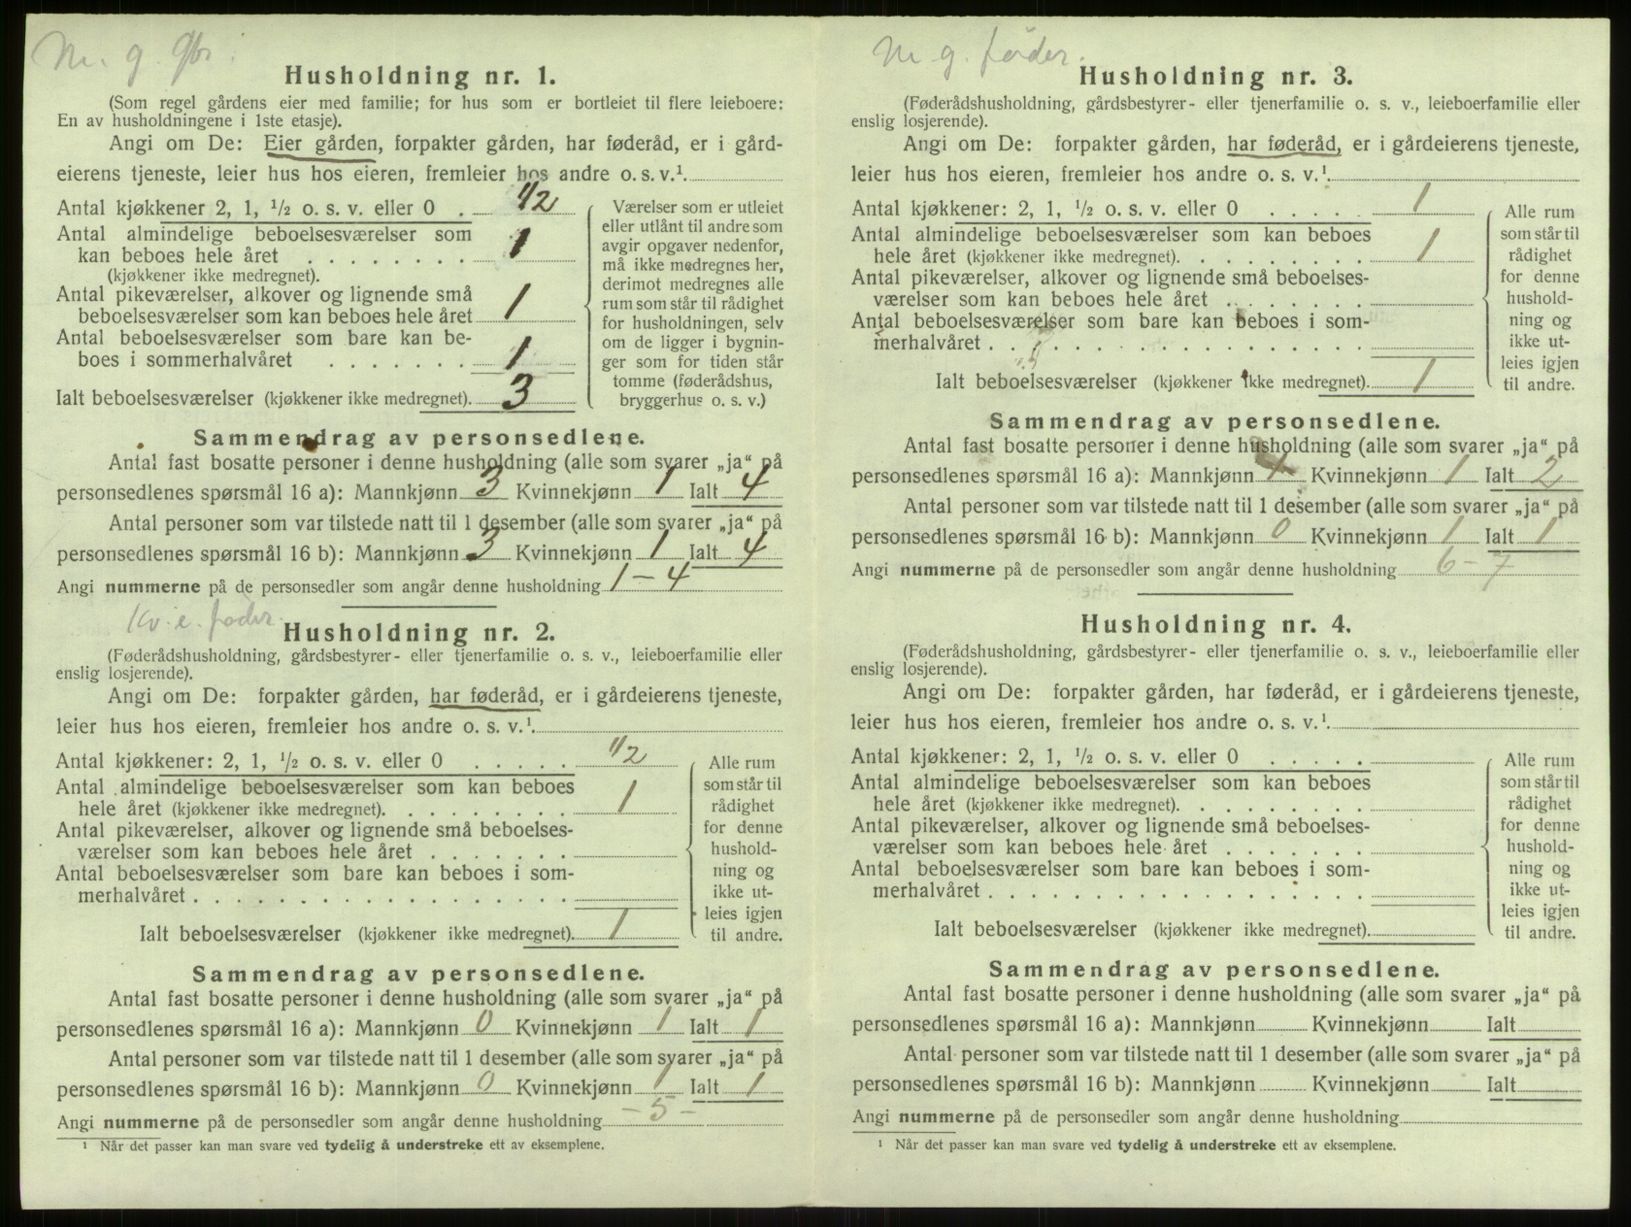 M. g. gbr.
Husholdning nr. 1.
(Som regel gårdens eier med familie; for hus som er bortleiet til flere leieboere:
En av husholdningene i 1ste etasje).
Angi om De: Eier gården, forpakter gården, har føderåd, er i gård-
eierens tjeneste, leier hus hos eieren, fremleier hos andre o. s. v.¹
Antal kjøkkener 2, 1, ½ o. s. v. eller 0 . 1/2
Antal almindelige beboelsesværelser som
kan beboes hele året . . . . . . . . 1
(kjøkkener ikke medregnet).
Antal pikeværelser, alkover og lignende små
beboelsesværelser som kan beboes hele året 1
Antal beboelsesværelser som bare kan be-
boes i sommerhalvåret . . . . . . . 1
Ialt beboelsesværelser (kjøkkener ikke medregnet). 3
Værelser som er utleiet
eller utlånt til andre som
avgir opgaver nedenfor,
må ikke medregnes her,
derimot medregnes alle
rum som står til rådighet
for husholdningen, selv
om de ligger i bygnin-
ger som for tiden står
tomme (føderådshus,
bryggerhus o. s. v.)
Sammendrag av personsedlene.
Antal fast bosatte personer i denne husholdning (alle som svarer „ja“ på
personsedlenes spørsmål 16 a): Mannkjønn 3 Kvinnekjønn 1 Ialt 4
Antal personer som var tilstede natt til 1 desember (alle som svarer „ja“ på
personsedlenes spørsmål 16 b): Mannkjønn 3 Kvinnekjønn 1 Ialt 4
Angi nummerne på de personsedler som angår denne husholdning 1 - 4
Kv. e. føder.
Husholdning nr. 2.
(Føderådshusholdning, gårdsbestyrer- eller tjenerfamilie o. s. v., leieboerfamilie eller
enslig losjerende).
Angi om De: forpakter gården, har føderåd, er i gårdeierens tjeneste,
leier hus hos eieren, fremleier hos andre o. s. v.¹
Antal kjøkkener: 2, 1, ½ o. s. v. eller 0 . . . . . 1/2
Antal almindelige beboelsesværelser som kan beboes
hele året (kjøkkener ikke medregnet). . . . . . . . 1
Antal pikeværelser, alkover og lignende små beboelses-
værelser som kan beboes hele året . . . . . . .
Antal beboelsesværelser som bare kan beboes i som-
merhalvåret . . . . . . . . . . . . . . . . .
Ialt beboelsesværelser (kjøkkener ikke medregnet). 1
Alle rum
som står til
rådighet
for denne
hushold-
ning og
ikke ut-
leies igjen
til andre.
Sammendrag av personsedlene.
Antal fast bosatte personer i denne husholdning (alle som svarer „ja“ på
personsedlenes spørsmål 16 a): Mannkjønn 0 Kvinnekjønn 1 Ialt 1
Antal personer som var tilstede natt til 1 desember (alle som svarer „ja“ på
personsedlenes spørsmål 16 b): Mannkjønn 0 Kvinnekjønn 1 Ialt 1
Angi nummerne på de personsedler som angår denne husholdning - 5 -
¹ Når det passer kan man svare ved tydelig å understreke ett av eksemplene.
M g. føder.
Husholdning nr. 3.
(Føderådshusholdning, gårdsbestyrer- eller tjenerfamilie o. s. v., leieboerfamilie eller
enslig losjerende).
Angi om De: forpakter gården, har føderåd, er i gårdeierens tjeneste,
leier hus hos eieren, fremleier hos andre o. s. v.¹
Antal kjøkkener: 2, 1, ½ o. s. v. eller 0 . . . . . 1
Antal almindelige beboelsesværelser som kan beboes
hele året (kjøkkener ikke medregnet). . . . . . . . 1
Antal pikeværelser, alkover og lignende små beboelses-
værelser som kan beboes hele året . . . . . . .
Antal beboelsesværelser som bare kan beboes i som-
merhalvåret . . . . . . . . . . . . . . . . .
Ialt beboelsesværelser (kjøkkener ikke medregnet). 1
Alle rum
som står til
rådighet
for denne
hushold-
ning og
ikke ut-
leies igjen
til andre.
Sammendrag av personsedlene.
Antal fast bosatte personer i denne husholdning (alle som svarer „ja“ på
personsedlenes spørsmål 16 a): Mannkjønn Kvinnekjønn 1 Ialt 2
Antal personer som var tilstede natt til 1 desember (alle som svarer „ja“ på
personsedlenes spørsmål 16 b): Mannkjønn 0 Kvinnekjønn 1 Ialt 1
Angi nummerne på de personsedler som angår denne husholdning 6 - 7
Husholdning nr. 4.
(Føderådshusholdning, gårdsbestyrer- eller tjenerfamilie o. s. v., leieboerfamilie eller
enslig losjerende).
Angi om De: forpakter gården, har føderåd, er i gårdeierens tjeneste,
leier hus hos eieren, fremleier hos andre o. s. v.¹
Antal kjøkkener: 2, 1, ½ o. s. v. eller 0 . . . . .
Antal almindelige beboelsesværelser som kan beboes
hele året (kjøkkener ikke medregnet). . . . . . . .
Antal pikeværelser, alkover og lignende små beboelses-
værelser som kan beboes hele året . . . . . . .
Antal beboelsesværelser som bare kan beboes i som-
merhalvåret . . . . . . . . . . . . . . . . .
Ialt beboelsesværelser (kjøkkener ikke medregnet).
Alle rum
som står til
rådighet
for denne
hushold-
ning og
ikke ut-
leies igjen
til andre.
Sammendrag av personsedlene.
Antal fast bosatte personer i denne husholdning (alle som svarer „ja“ på
personsedlenes spørsmål 16 a): Mannkjønn Kvinnekjønn Ialt
Antal personer som var tilstede natt til 1 desember (alle som svarer „ja“ på
personsedlenes spørsmål 16 b): Mannkjønn Kvinnekjønn Ialt
Angi nummerne på de personsedler som angår denne husholdning
¹ Når det passer kan man svare ved tydelig å understreke ett av eksemplene.